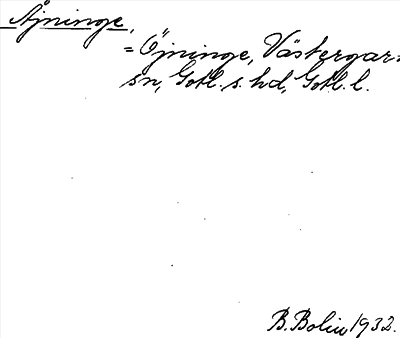 Åjninge,
= Öjninge, Västergarns
sn, Gotl. s. hd, Gotl. l.
B. Bolin 1932.